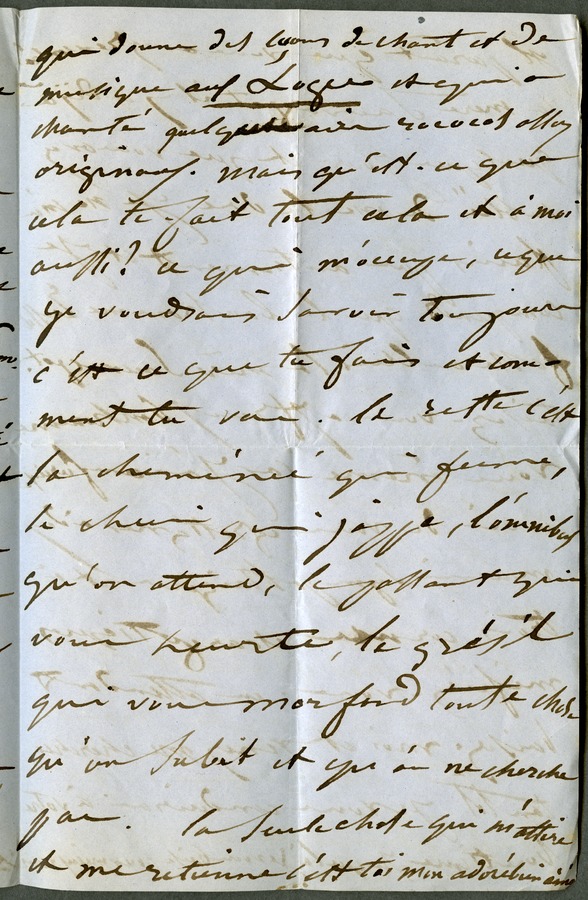 qui donne des leçons de chant et de
musique aux Loges et qui a
chanté quelques airs rococos assez
originaux. mais qu'est-ce que
cela te fait tout cela et à moi
aussi? ce qui m'occupe, ce que
je voudrais savoir toujours
c'est ce que tu fais et com-
ment tu vas. le reste c'est
la cheminée qui fume,
le chien qui jappe, l'omnibus
qu'on attend, le passant qui
vous heurte, le grésil
qui vous morfond toute chose
qu'on subit et qu'on ne cherche
pas. la seule chose qui m'attire
et me retienne c'est toi mon adoré bien aimé